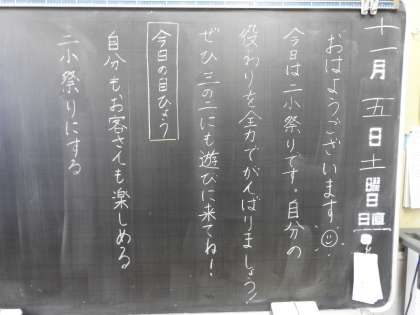 十一月五日土曜日
日直
おはようございます
今日は二小祭りです。自分の
役わりを全力でがんばりましょう!
ぜひ三の二にも遊びに来てね!
今日の目ひょう
自分もお客さんも楽しめる
二小祭りにする